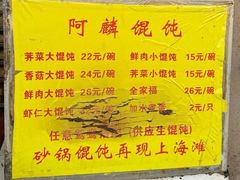 阿麟馄饨
荠菜大馄饨 22元/碗 鲜肉小馄饨 15元/碗
香菇大馄饨 24元/碗 荠菜小馄饨 15元/碗
鲜肉大馄饨 26元/碗 全家福 26元/碗
虾仁大馄饨 元/碗 加水 2元/只
任意 (供应生馄饨)
砂锅馄饨再现上海滩